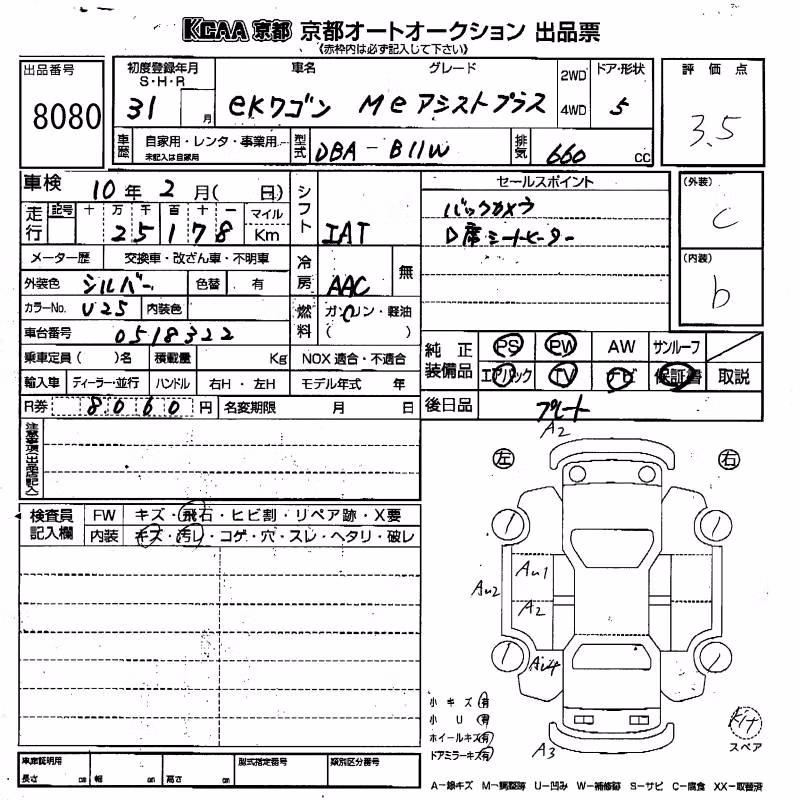 KCAA 京都 京都オートオークション 出品票
《赤枠内は必ず記入して下さい》
出品番号 8080
初度登録年月 S・H・R 31 月
車名 eKワゴン
グレード Meアシストプラス
2WD 4WD
ドア・形状 5
評価点 3.5
車歴 自家用・レンタ・事業用 未記入は自家用
型式 DBA-B11W
排気 660 cc
車検 10年2月( 日)
シフト IAT
セールスポイント
バックカメラ
D席シートヒーター
(外装) C
(内装) b
走行 記号 十 万 千 百 十 一 マイル
25178 Km
メーター歴 交換車・改ざん車・不明車
冷房 AAC 無
外装色 シルバー 色替 有
カラーNo. U25 内装色
燃料 ガソリン・軽油 ( )
車台番号 0518322
乗車定員( )名 積載量 Kg NOX 適合・不適合
輸入車 ディーラー・並行 ハンドル 右H・左H モデル年式 年
R券 8060円 名変期限 月 日
純正装備品 PS PW AW サンルーフ
エアバック TV ナビ 保証書 取説
後日品 プレート
注意事項(出品店記入)
検査員記入欄 FW キズ・飛石・ヒビ割・リペア跡・X要
内装 キズ・汚レ・コゲ・穴・スレ・ヘタリ・破レ
A2
左 右
AU1
AU2
A2
A3
小キズ 有
小U 有
ホイールキズ 有
ドアミラーキズ 有
Kit
スペア
車庫証明用 型式指定番号 類別区分番号
長さ cm 幅 cm 高さ cm
A-線キズ M-調整跡 U-凹み W-補修跡 S-サビ C-腐食 XX-取替済